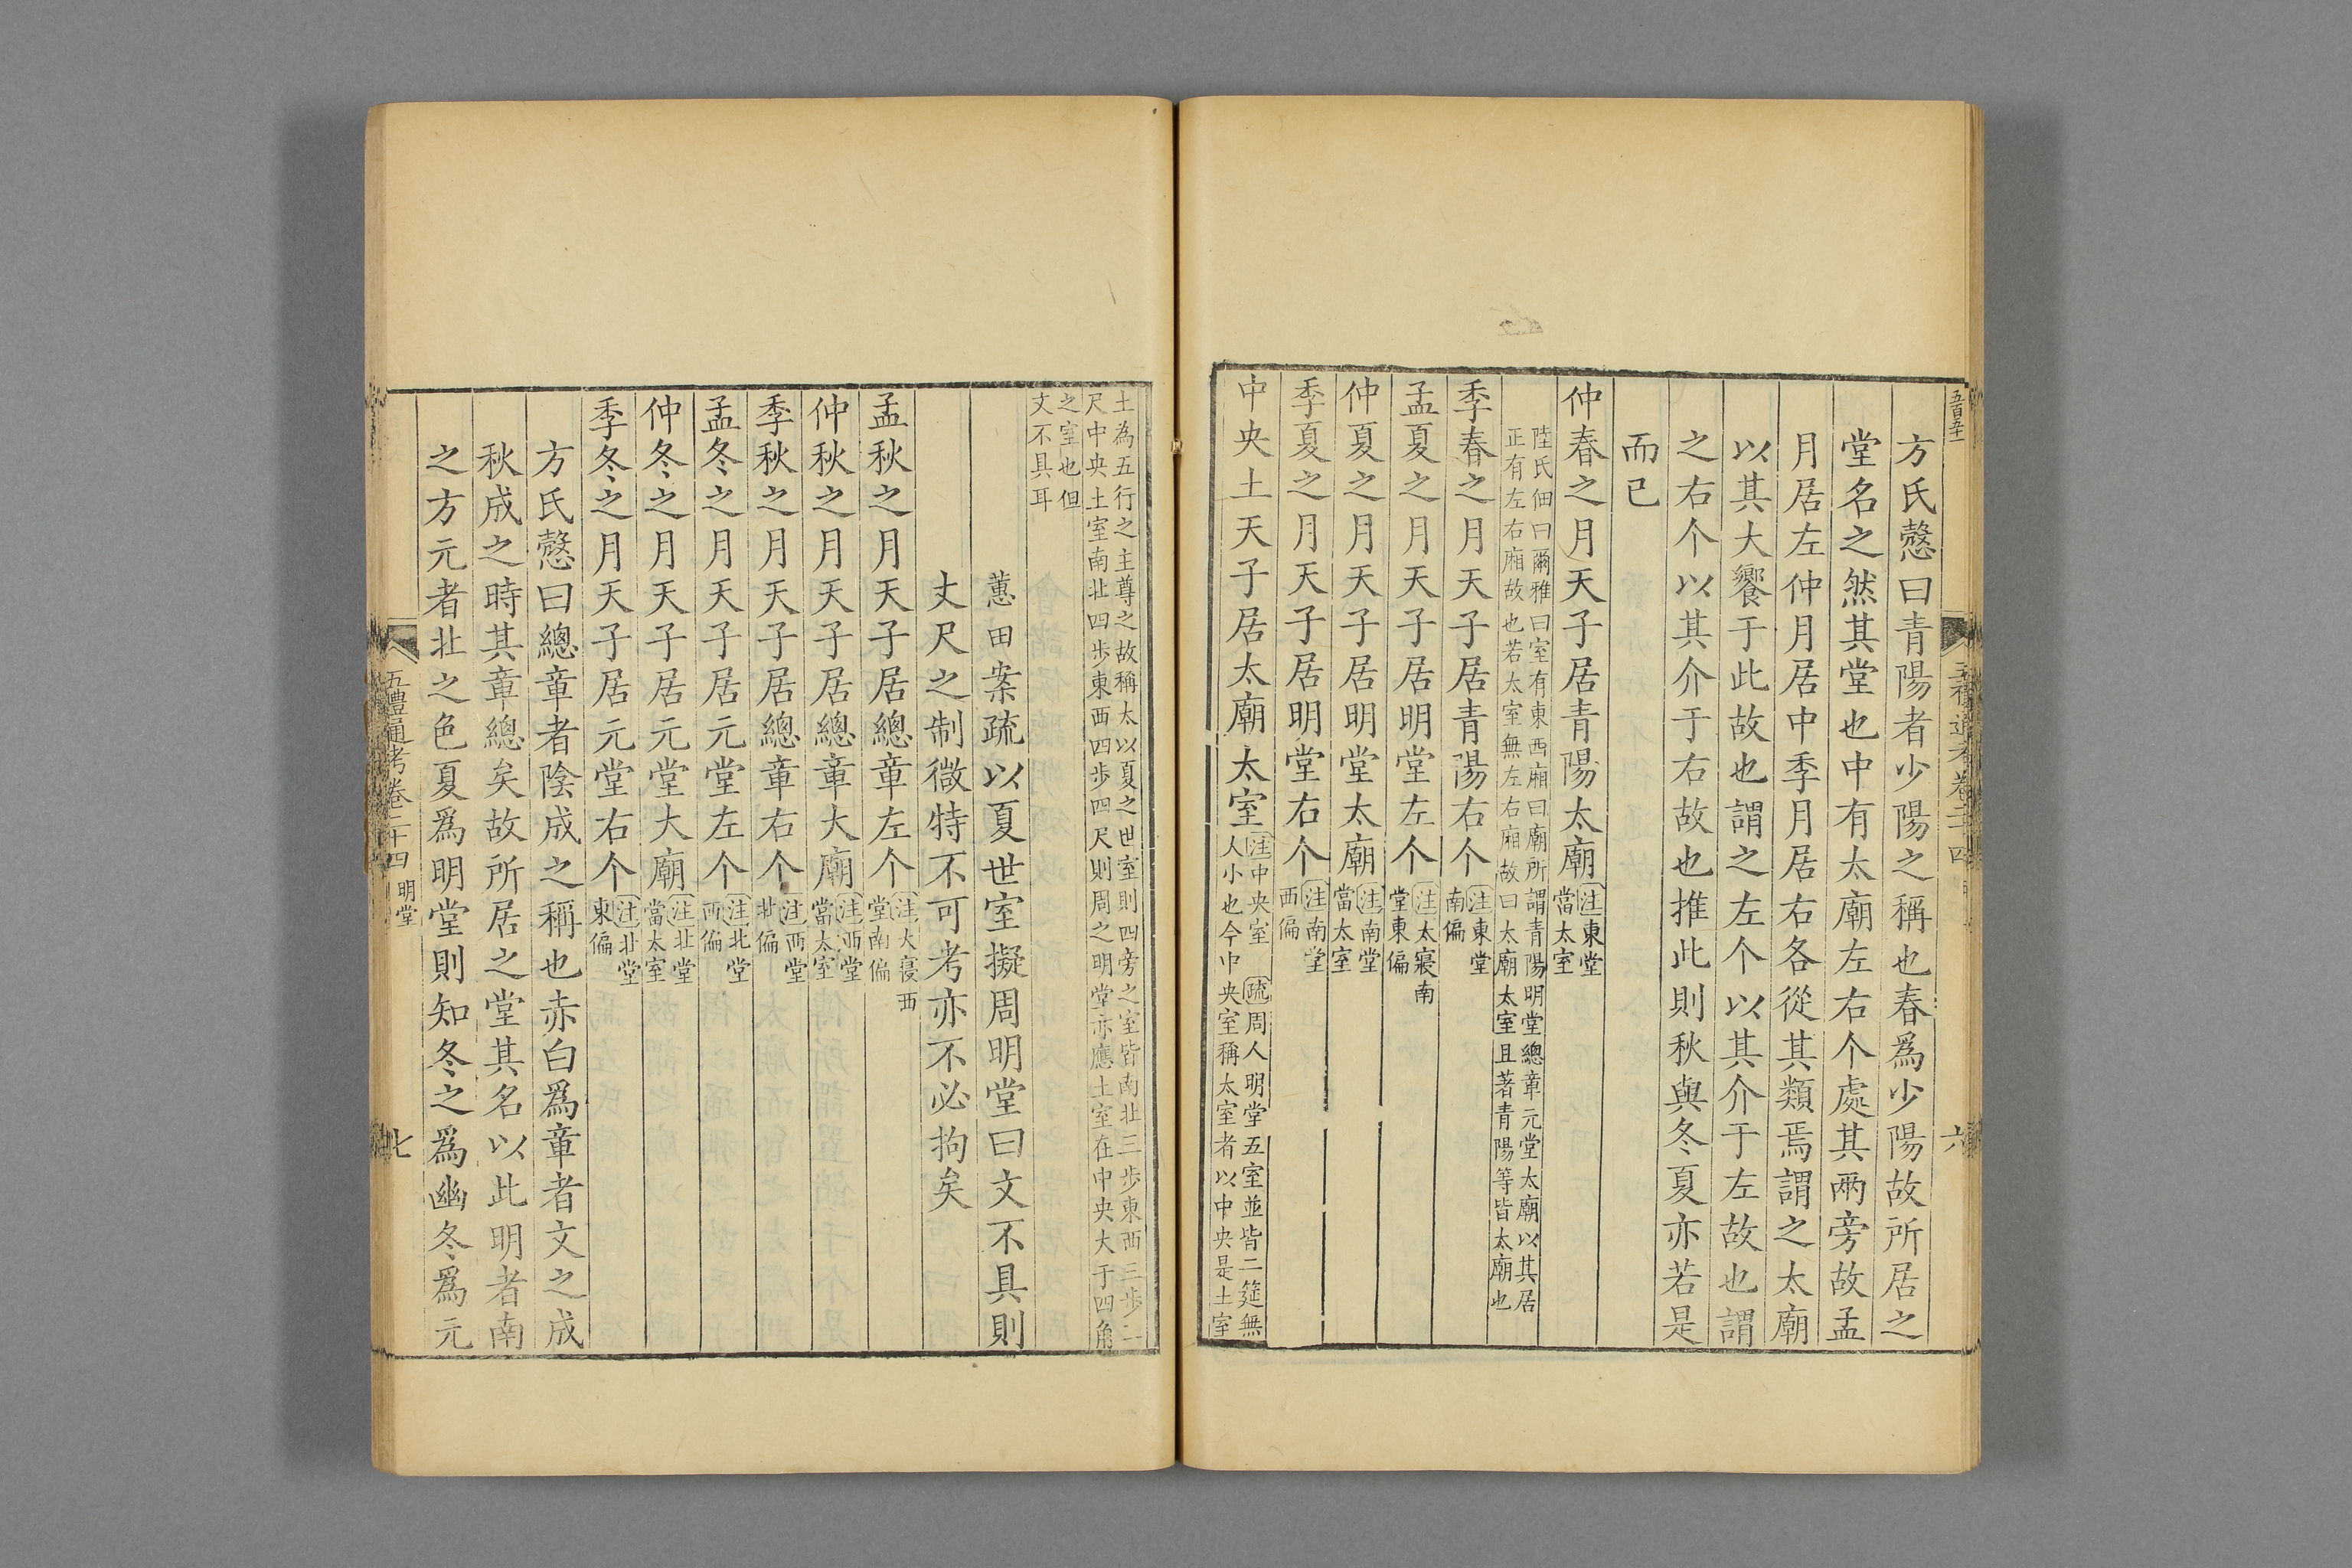 五百五十一
五禮通考卷二十四
六
方氏慤曰青陽者少陽之稱也春爲少陽故所居之
堂名之然其堂也中有太廟左右个處其兩旁故孟
月居左仲月居中季月居右各從其類焉謂之太廟
以其大饗于此故也謂之左个以其介于左故也謂
之右个以其介于右故也推此則秋與冬夏亦若是
而已
仲春之月天子居青陽太廟
注東堂
當太室
陸氏佃曰爾雅曰室有東西廂曰廟所謂青陽明堂總章元堂太廟以其居
正有左右廂故也若太室無左右廂故曰太廟太室且著青陽等皆太廟也
季春之月天子居青陽右个
注東堂
南偏
孟夏之月天子居明堂左个
注太寢南
堂東偏
仲夏之月天子居明堂太廟
注南堂
當太室
季夏之月天子居明堂右个
注南堂
西偏
中央土天子居太廟太室
注中央室疏周人明堂五室並皆二筵無
人小也今中央室稱太室者以中央是土室
土為五行之主尊之故稱太以夏之世室則四旁之室皆南北三步東西三步二
尺中央土室南北四步東西四步四尺則周之明堂亦應土室在中央大于四角
之室也但
文不具耳
蕙田案疏以夏世室擬周明堂曰文不具則
丈尺之制微特不可考亦不必拘矣
孟秋之月天子居總章左个
注大寢西
堂南偏
仲秋之月天子居總章大廟
注西堂
當太室
季秋之月天子居總章右个
注西堂
北偏
孟冬之月天子居元堂左个
注北堂
西偏
仲冬之月天子居元堂大廟
注北堂
當太室
季冬之月天子居元堂右个
注北堂
東偏
方氏慤曰總章者陰成之稱也赤白爲章者文之成
秋成之時其章總矣故所居之堂其名以此明者南
之方元者北之色夏爲明堂則知冬之爲幽冬爲元
五禮通考卷二十四 明堂
七